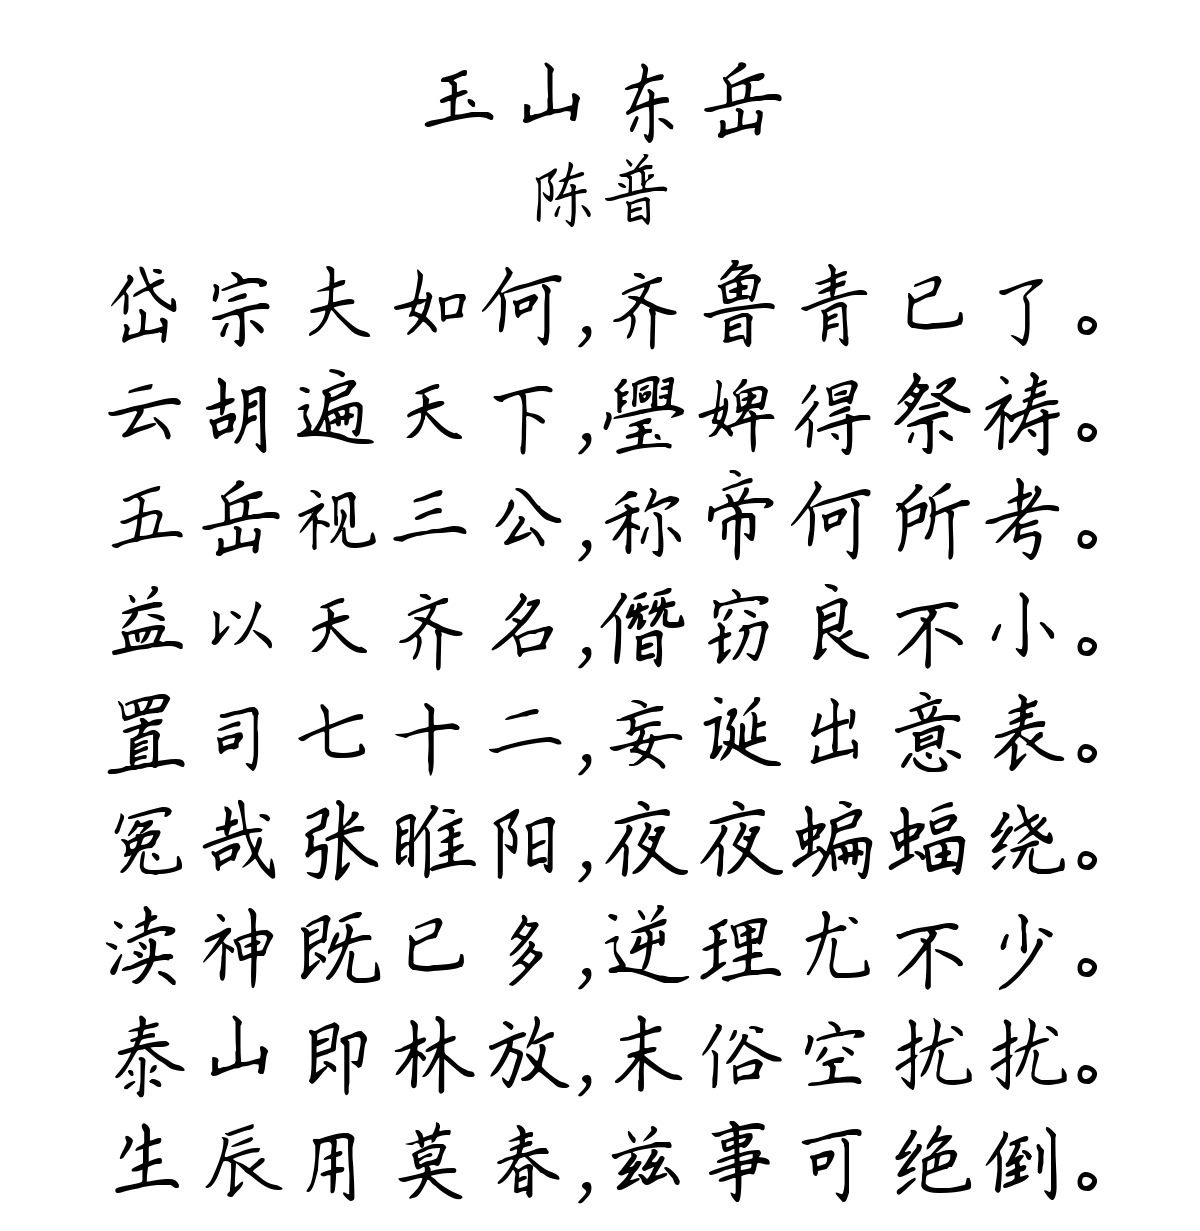 玉山东岳
陈普
岱宗夫如何,齐鲁青已了。
云胡遍天下,璺婢得祭祷。
五岳视三公,称帝何所考。
益以天齐名,僭窃良不小。
置司七十二,妄诞出意表。
冤哉张睢阳,夜夜蝙蝠绕。
渎神既已多,逆理尤不少。
泰山即林放,末俗空扰扰。
生辰用莫春,兹事可绝倒。